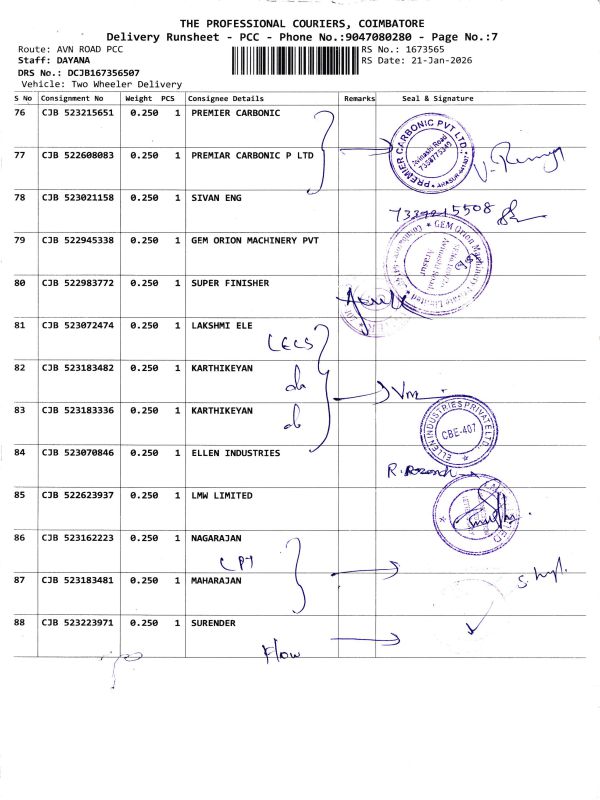 THE PROFESSIONAL COURIERS, COIMBATORE
Delivery Runsheet - PCC - Phone No.:9047080280 - Page No.:7
Route: AVN ROAD PCC
RS No.: 1673565
Staff: DAYANA
RS Date: 21-Jan-2026
DRS No.: DCJB167356507
Vehicle: Two Wheeler Delivery
S No Consignment No Weight PCS Consignee Details Remarks Seal & Signature
76 CJB 523215651 0.250 1 PREMIER CARBONIC
PREMIER CARBONIC PVT LTD.
77 CJB 522608083 0.250 1 PREMIAR CARBONIC P LTD
78 CJB 523021158 0.250 1 SIVAN ENG
79 CJB 522945338 0.250 1 GEM ORION MACHINERY PVT
GEM Orion Machinery Private Limited
80 CJB 522983772 0.250 1 SUPER FINISHER
81 CJB 523072474 0.250 1 LAKSHMI ELE
LECS
82 CJB 523183482 0.250 1 KARTHIKEYAN
83 CJB 523183336 0.250 1 KARTHIKEYAN
ELLEN INDUSTRIES PRIVATE LTD.
CBE-407
84 CJB 523070846 0.250 1 ELLEN INDUSTRIES
85 CJB 522623937 0.250 1 LMW LIMITED
86 CJB 523162223 0.250 1 NAGARAJAN
CPT
87 CJB 523183481 0.250 1 MAHARAJAN
88 CJB 523223971 0.250 1 SURENDER
Flow